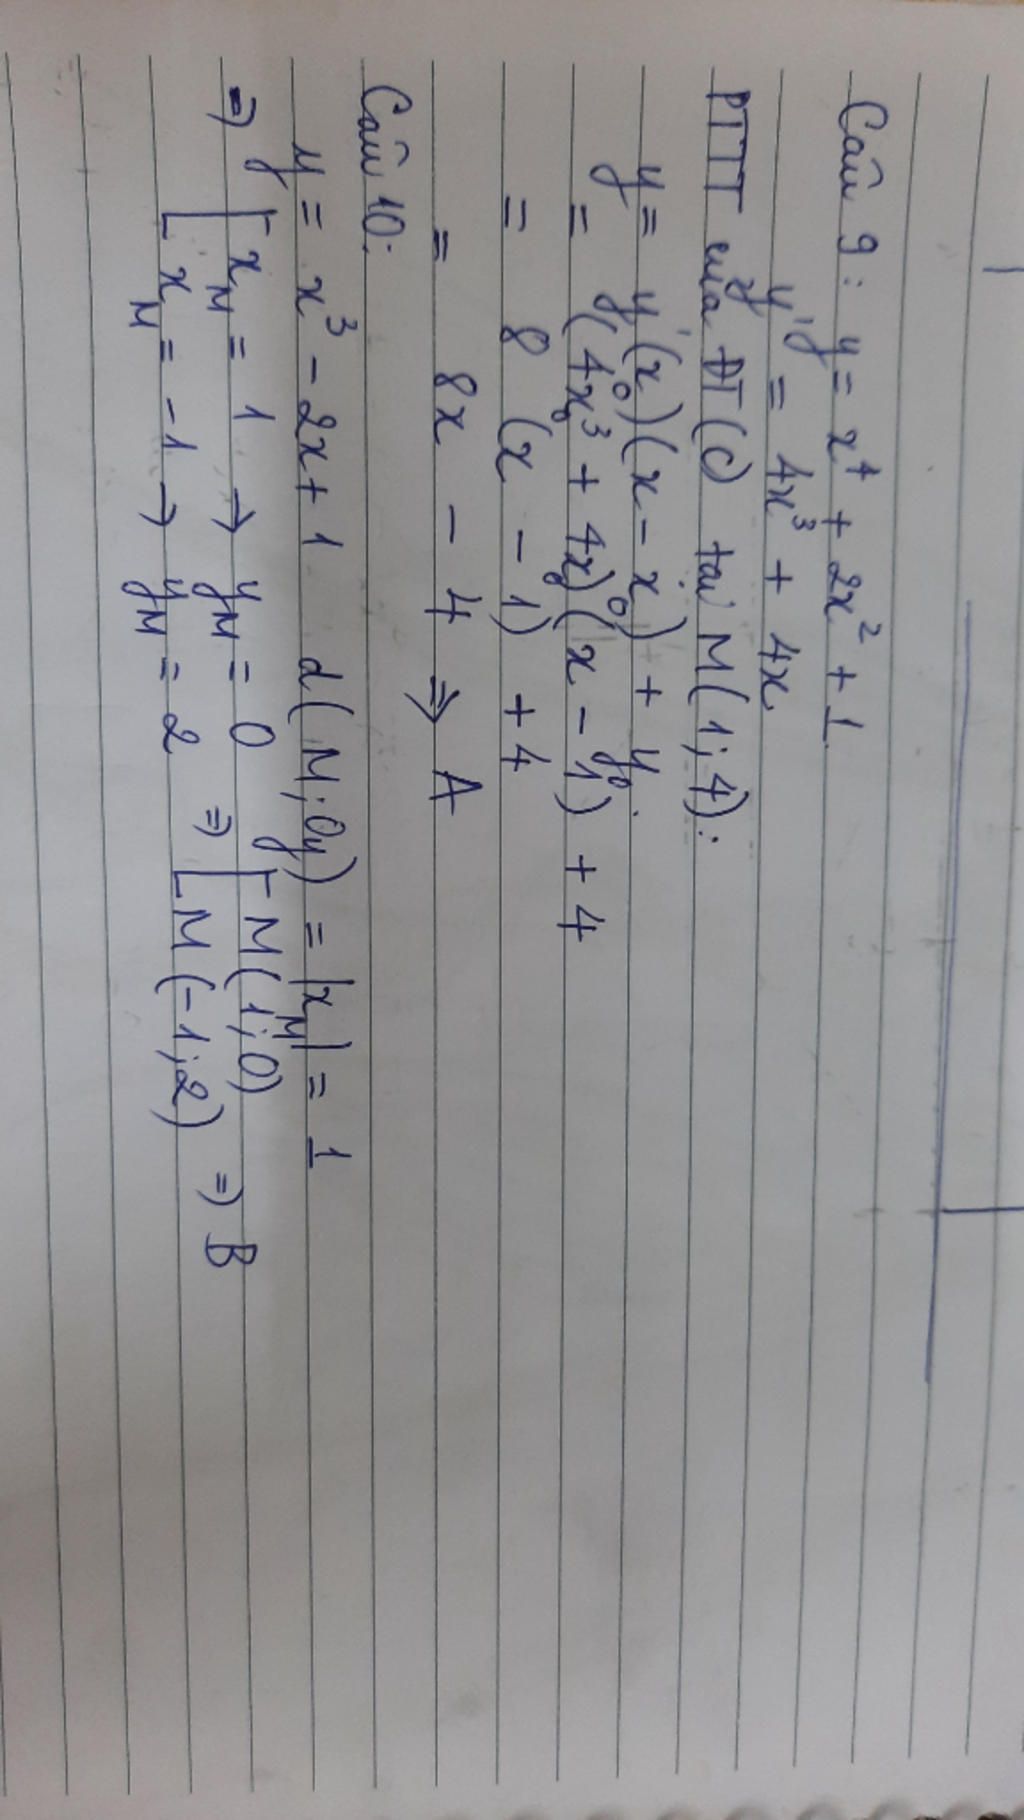 Câu 9: y = x⁴ + 2x² + 1
y' = 4x³ + 4x
PTTT của ĐT (C) tại M(1; 4):
y = y'(x₀)(x - x₀) + y₀.
= (4x₀³ + 4x₀)(x - 1) + 4
= 8 (x - 1) + 4
= 8x - 4 => A
Câu 10:
y = x³ - 2x + 1 d(M; Oy) = |x_M| = 1
=> [ x_M = 1 → y_M = 0 => [ M(1; 0)
[ x_M = -1 → y_M = 2 [ M(-1; 2) => B